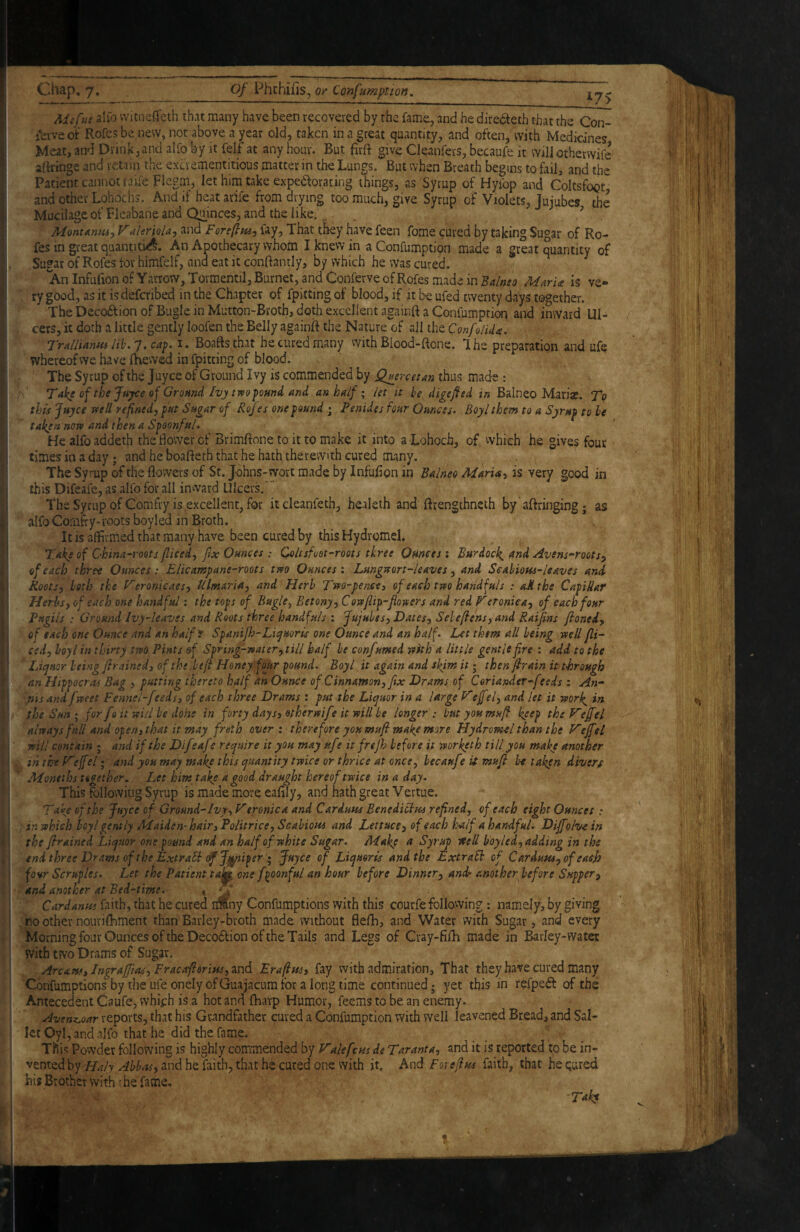 Chap. 7. Of Phthiſis, or Conſumption. 175
Meſue alſo witneſſeth that many have been recovered by the ſame, and he directeth that the Con-
ſerve of Roſes be new, not above a year old, taken in a great quantity, and often, with Medicines,
Meat, and Drink, and alſo by it ſelf at any hour. But firſt give Cleanſers, becauſe it will otherwiſe
aſtringe and retain the excrementitious matter in the Lungs. But when Breath begins to fail, and the
Patient cannot raiſe Flegm, let him take expectorating things, as Syrup of Hyſop and Coltsfoot,
and other Lohochs. And if heat ariſe from drying too much, give Syrup of Violets, Jujubes, the
Mucilage of Fleabane and Quinces, and the like.
Montanus, Valeriola, and Foreſtus, ſay, That they have ſeen ſome cured by taking Sugar of Ro-
ſes in great quantities. An Apothecary whom I knew in a Conſumption made a great quantity of
Sugar of Roſes for himſelf, and eat it conſtantly, by which he was cured.
An Infuſion of Yarrow, Tormentil, Burnet, and Conſerve of Roſes made in Balneo Mariæ is ve-
ry good, as it is deſcribed in the Chapter of ſpitting of blood, if it be uſed twenty days together.
The Decoction of Bugle in Mutton-Broth, doth excellent againſt a Conſumption and inward Ul-
cers, it doth a little gently looſen the Belly againſt the Nature of all the Conſolida.
Trallianus lib. 7. cap. 1. Boaſts that he cured many with Blood-ſtone. The preparation and uſe
whereof we have ſhewed in ſpitting of blood.
The Syrup of the Juyce of Ground Ivy is commended by Quercetan thus made :
Take of the Juyce of Ground Ivy two pound and an half ; let it be digeſted in Balneo Mariæ. To
this Juyce well refined, put Sugar of Roſes one pound ; Penides four Ounces. Boyl them to a Syrup to be
taken now and then a Spoonful.
He alſo addeth the flower of Brimſtone to it to make it into a Lohoch, of which he gives four
times in a day ; and he boaſteth that he hath therewith cured many.
The Syrup of the flowers of St. Johns-wort made by Infuſion in Balneo Mariæ, is very good in
this Diſeaſe, as alſo for all inward Ulcers.
The Syrup of Comfry is excellent, for it cleanſeth, healeth and ſtrengthneth by aſtringing ; as
alſo Comfry-roots boyled in Broth.
It is affirmed that many have been cured by this Hydromel.
Take of China-roots ſliced, ſix Ounces : Coltsfoot-roots three Ounces : Burdock and Avens-roots,
of each three Ounces : Elicampane-roots two Ounces : Lungwort-leaves, and Scabious-leaves and
Roots, both the Veronicaes, Ulmaria, and Herb Two-pence, of each two handfuls : all the Capillar
Herbs, of each one handful : the tops of Bugle, Betony, Cowſlip-flowers and red Veronica, of each four
Pugils : Ground Ivy-leaves and Roots three handfuls : Jujubes, Dates, Sebeſtens, and Raiſins ſtoned,
of each one Ounce and an half : Spaniſh-Liquoris one Ounce and an half. Let them all being well ſli-
ced, boyl in thirty two Pints of Spring-water, till half be conſumed with a little gentle fire : add to the
Liquor being ſtrained, of the beſt Honey four pound. Boyl it again and skim it ; then ſtrain it through
an Hippocras Bag, putting thereto half an Ounce of Cinnamon, ſix Drams of Coriander-ſeeds : An-
nis and ſweet Fennel-ſeeds, of each three Drams : put the Liquor in a large Veſſel, and let it work in
the Sun ; for ſo it will be done in forty days, otherwiſe it will be longer : but you muſt keep the Veſſel
always full and open, that it may froth over : therefore you muſt make more Hydromel than the Veſſel
will contain ; and if the Diſeaſe require it you may uſe it freſh before it worketh till you make another
in the Veſſel ; and you may make this quantity twice or thrice at once, becauſe it muſt be taken divers
Moneths together. Let him take a good draught hereof twice in a day.
This following Syrup is made more eaſily, and hath great Vertue.
Take of the Juyce of Ground-Ivy, Veronica and Carduus Benedictus refined, of each eight Ounces :
in which boyl gently Maiden-hair, Politrice, Scabious and Lettuce, of each half a handful. Diſſolve in
the ſtrained Liquor one pound and an half of white Sugar. Make a Syrup well boyled, adding in the
end three Drams of the Extract of Juniper ; Juyce of Liquoris and the Extract of Carduus, of each
four Scruples. Let the Patient take one ſpoonful an hour before Dinner, and another before Supper,
and another at Bed-time.
Cardanus ſaith, that he cured many Conſumptions with this courſe following : namely, by giving
no other nouriſhment than Barley-broth made without fleſh, and Water with Sugar, and every
Morning four Ounces of the Decoction of the Tails and Legs of Cray-fiſh made in Barley-water
with two Drams of Sugar.
Arcanus, Ingraſſias, Fracaſtorius, and Eraſtus, ſay with admiration, That they have cured many
Conſumptions by the uſe onely of Guajacum for a long time continued ; yet this in reſpect of the
Antecedent Cauſe, which is a hot and ſharp Humor, ſeems to be an enemy.
Avenzoar reports, that his Grandfather cured a Conſumption with well leavened Bread, and Sal-
let Oyl, and alſo that he did the ſame.
This Powder following is highly commended by Valeſcus de Taranta, and it is reported to be in-
vented by Haly Abbas, and he ſaith, that he cured one with it. And Foreſtus ſaith, that he cured
his Brother with the ſame.
Take